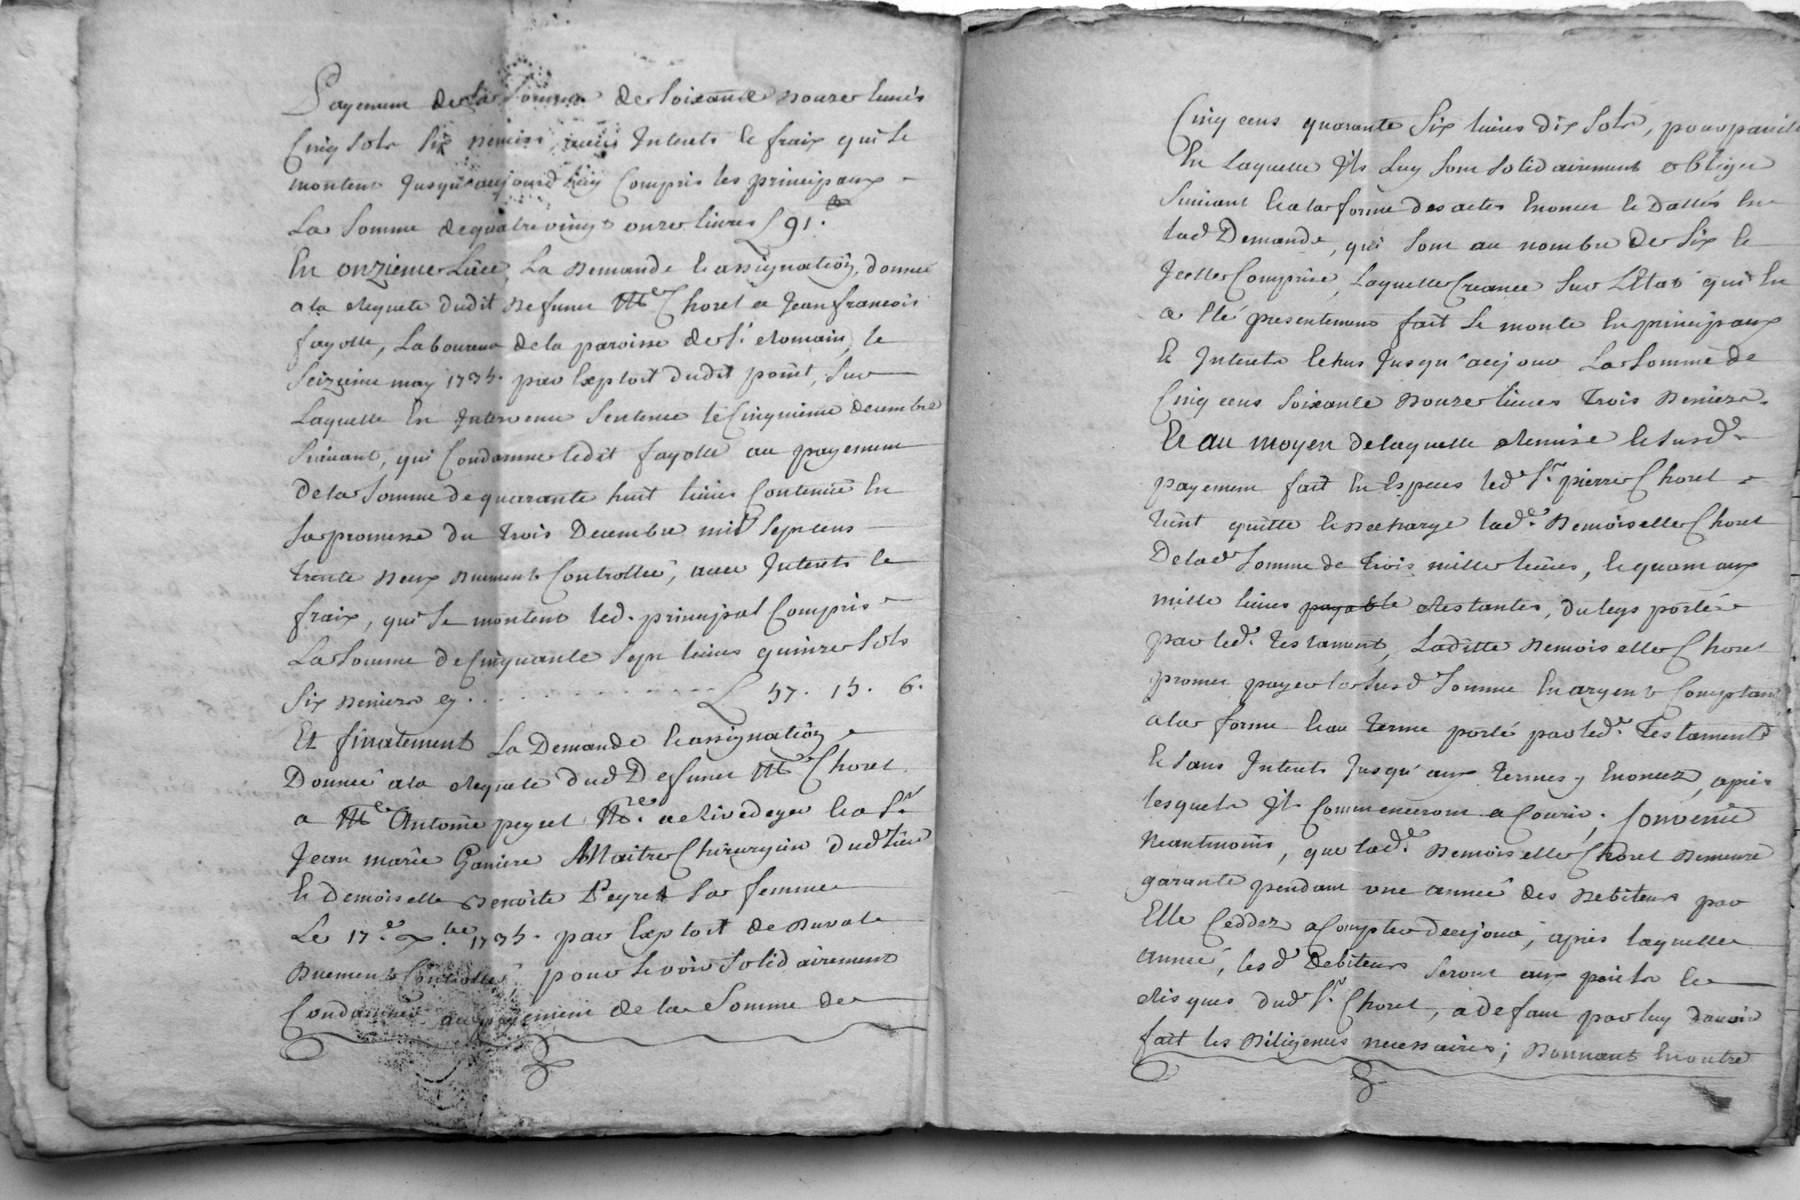 Payement de la somme de soixante douze livres
Cinq sols six deniers, avec Interets et fraix qui se
montent jusqu'aujourd'huy Compris les principaux
La Somme de quatre vingt onze livres £ 91.#
En onzieme Lieu, La Demande et assignation, donnée
a la Requete dudit Defunt Me Chorel a Jean francois
fayolle, Laboureur de la paroisse de St. Romain, le
Seizieme may 1735. par Exploit dudit point, sur
Laquelle Est Intervenu Sentence le Cinquieme decembre
Suivant, qui Condamne ledit fayolle au payement
De la Somme de quarante huit livres Contenüe En
sa promesse du trois Decembre mil sept cens
trente deux duement Controllée, avec Interets et
fraix, qui se montent led. principal Compris
La Somme de Cinquante sept livres quinze sols
Six deniers cy . . . . . . . . . £ 57. 15. 6.
Et finalement La Demande et assignation
Donnée a la Requete dud Defunt Me Chorel
a Me Antoine peyret Nre. de Rivedegier et a Sr.
Jean marie Ganiere Maitre Chirurgien dud lieu
et demoiselle Benoite Peyret sa femme
Le 17.e xbre 1735. par Exploit de Duval
Duement Controllé, pour se voir solidairement
Condamner au payement de la Somme de
Cinq cens quarante six livres dix sols, pour pareille
En laquelle Ils luy sont solidairement obligés
Suivant et a la forme des actes Enoncés et Dattés En
lad Demande, qui sont au nombre de six et
Icelle Comprise, Laquelle Creance sur L'Etat qui En
a Eté presentement fait se monte En principaux
Et Interets Echus Jusqu'a ce jour La Somme de
Cinq cens soixante douze livres trois deniers.
Et au moyen de laquelle Remise et susd.
payement fait En Especes led. Sr. pierre Chorel
tient quitte et Decharge lade. Demoiselle Chorel
De lad Somme de trois mille livres, et quant aux
mille livres payable Restantes, du legs porté
par led. testament, Laditte Demoiselle Chorel
promet payer la susd Somme En argent Comptant
a la forme et au terme porté par led. Testament
Et sans Interets Jusqu'aux termes y Enoncez, après
lesquels Ils Commenceront a Courir, Convenû
Neantmoins, que lade. Demoiselle Chorel Demeure
garante pendant une année des debiteurs par
Elle Ceddez a Compter de ce jour, après laquelle
année, lesd Debiteurs seront aux perils et
Risques dud Sr. Chorel, a defaut par luy d'avoir
fait les Diligences necessaires; Donnant En outre